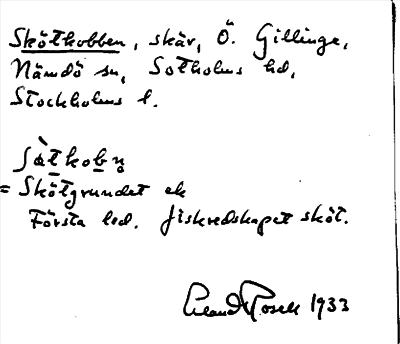 Skötkobben, skär, Ö. Gillinge,
Nämdö sn, Sotholms hd,
Stockholms l.
= Skötgrundet ek
Första led. fiskredskapet sköt.
1933